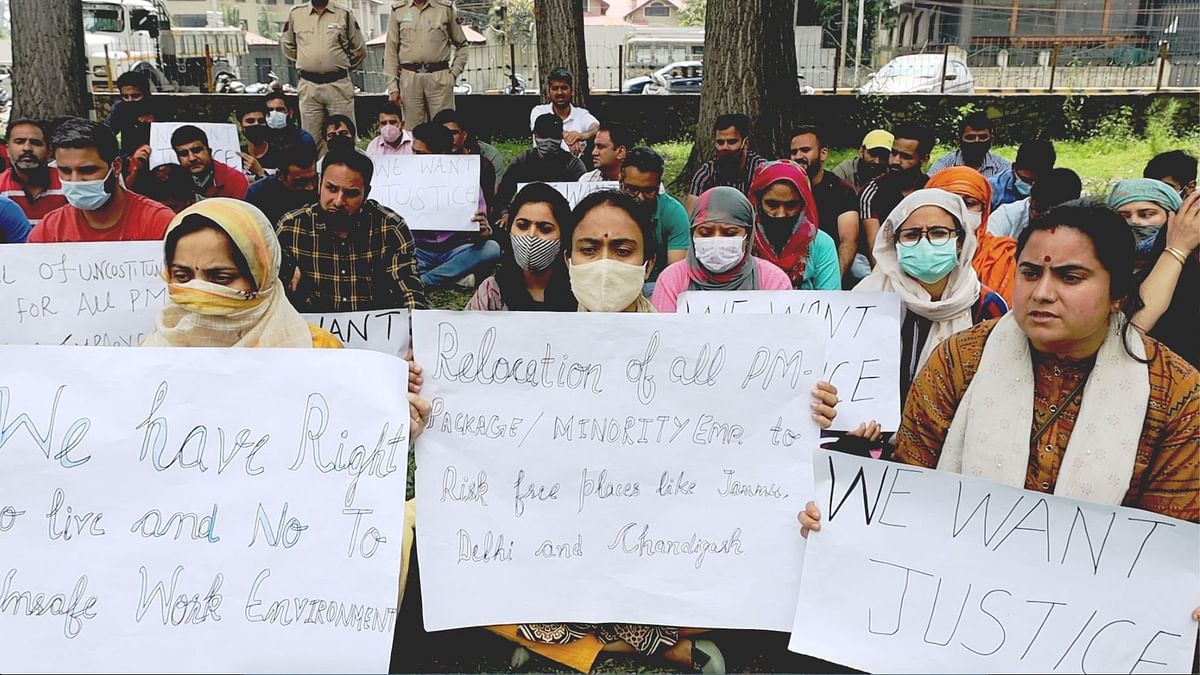 WE WANT
JUSTICE
L OF UNCOSTITUN
FOR ALL PM
WANT
WE WANT
CE
We have Right
o live and No To
Unsafe Work ENVIRONMENT
Relocation of all PM-
PACKAGE/ MINORITY EMP. to
Risk free places like Jammu,
Delhi and Chandigarh
WE WANT
JUSTICE